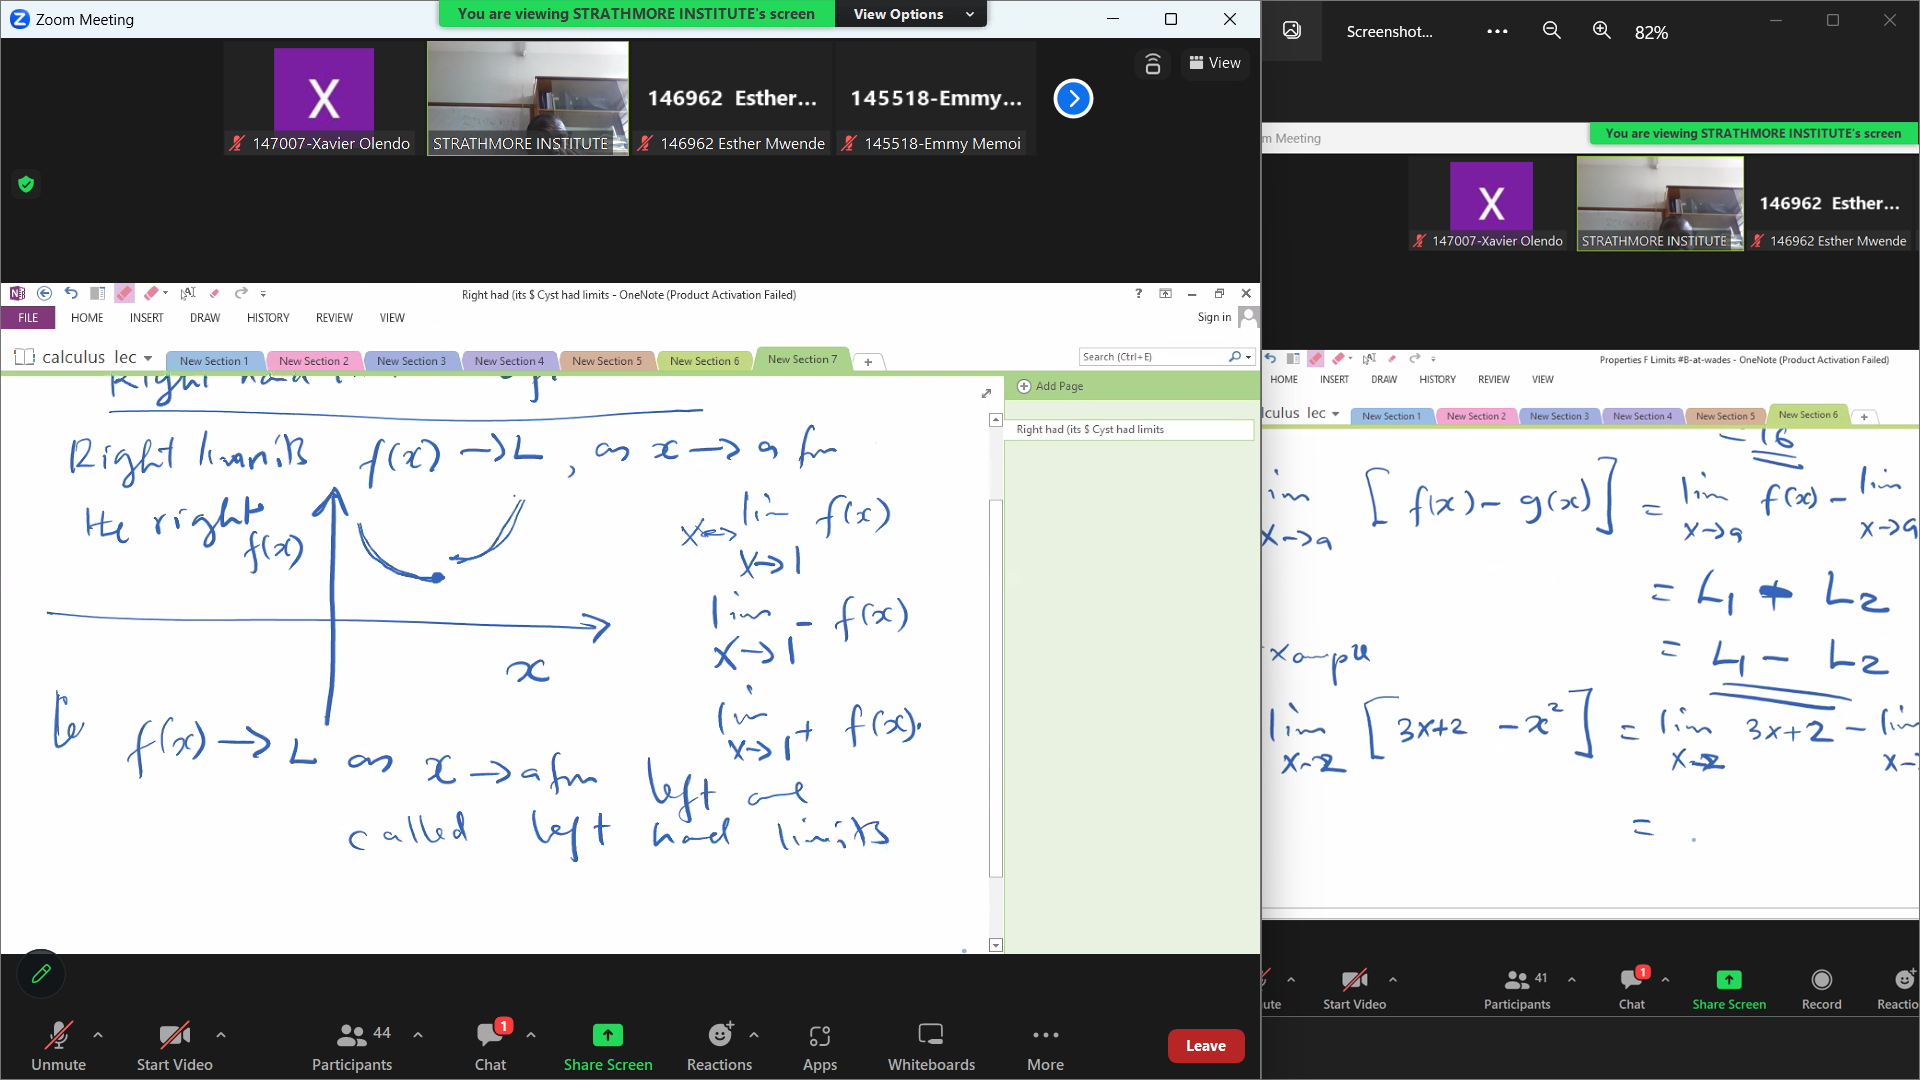 Zoom Meeting
You are viewing STRATHMORE INSTITUTE's screen
View Options
View
X
147007-Xavier Olendo
STRATHMORE INSTITUTE
146962 Esther...
146962 Esther Mwende
145518-Emmy...
145518-Emmy Memoi
Right had (its $ Cyst had limits - OneNote (Product Activation Failed)
FILE HOME INSERT DRAW HISTORY REVIEW VIEW
Sign in
calculus lec
New Section 1 New Section 2 New Section 3 New Section 4 New Section 5 New Section 6 New Section 7
Search (Ctrl+E)
Add Page
Right had (its $ Cyst had limits
Right limits f(x) → L, as x → a fm
the right
f(x)
x
lim f(x)
x→1
lim - f(x)
x→1
lim + f(x).
x→1
f(x) → L as x → a fm left are
called left had limits
Unmute
Start Video
Participants 44
Chat 1
Share Screen
Reactions
Apps
Whiteboards
More
Leave
Screenshot...
82%
m Meeting
You are viewing STRATHMORE INSTITUTE's screen
X
147007-Xavier Olendo
STRATHMORE INSTITUTE
146962 Esther...
146962 Esther Mwende
Properties F Limits #B-at-wades - OneNote (Product Activation Failed)
HOME INSERT DRAW HISTORY REVIEW VIEW
lculus lec
New Section 1 New Section 2 New Section 3 New Section 4 New Section 5 New Section 6
= 16
im [f(x) - g(x)] = lim f(x) - lim
x→a x→a x→a
= L1 + L2
= L1 - L2
lim [3x+2 - x²] = lim 3x+2 - lim
x→2 x→2 x→
=
ute
Start Video
Participants 41
Chat 1
Share Screen
Record
Reactio